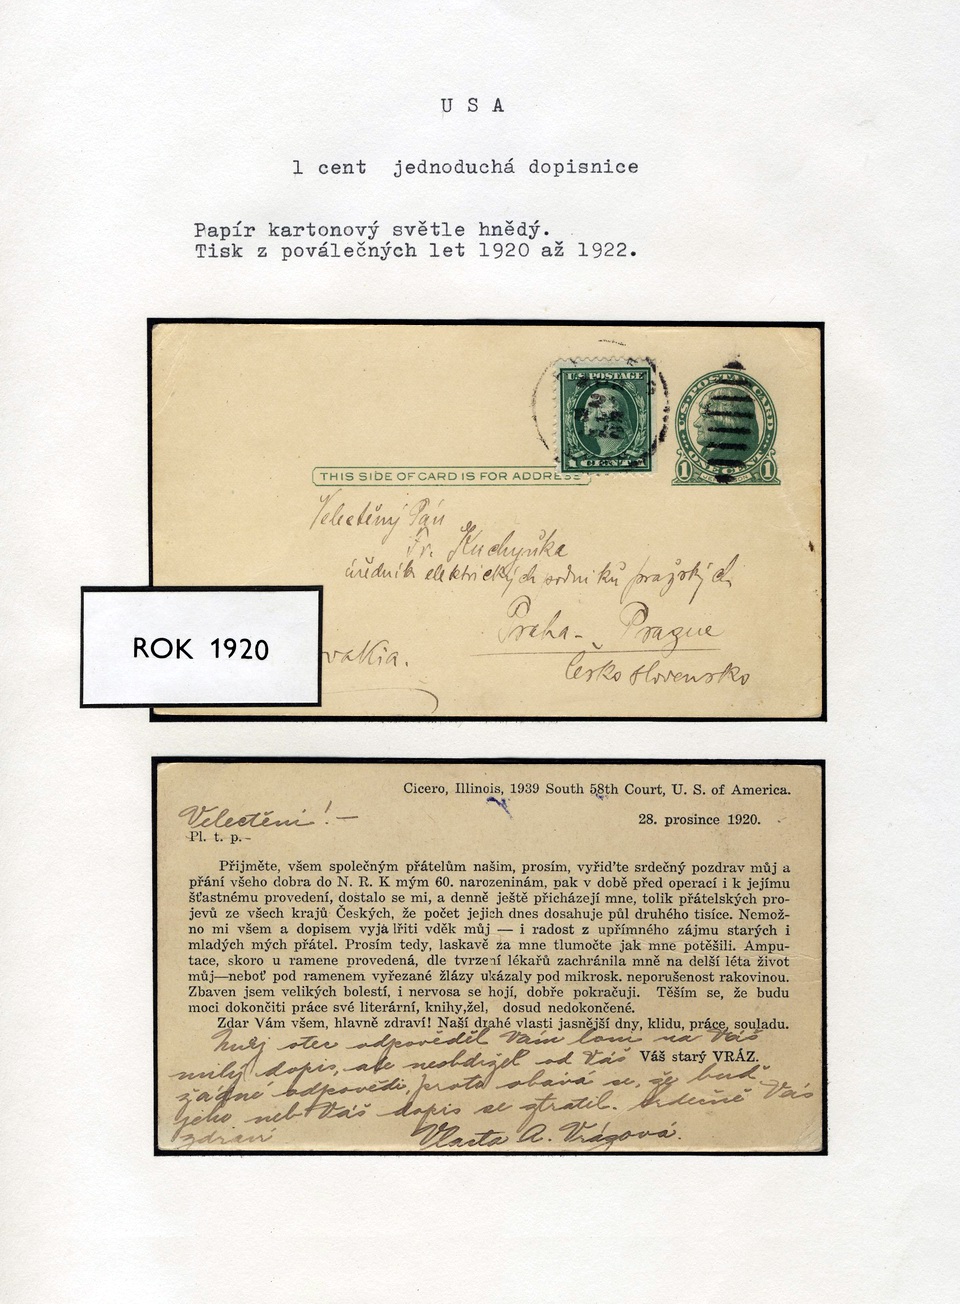 U S A
1 cent jednoduchá dopisnice
Papír kartonový světle hnědý.
Tisk z poválečných let 1920 až 1922.
U.S. POSTAGE
1 CENT 1
U.S. POSTAL CARD
1 ONE CENT 1
THIS SIDE OF CARD IS FOR ADDRESS
Velectěný Pán
Fr. Kuchyňka
úředník elektrických podniků pražských
Praha - Prague
Česko slovensko
vakia.
ROK 1920
Cicero, Illinois, 1939 South 58th Court, U. S. of America.
Velectěni! -
28. prosince 1920.
Pl. t. p.-
Přijměte, všem společným přátelům našim, prosím, vyřiďte srdečný pozdrav můj a
přání všeho dobra do N. R. K mým 60. narozeninám, pak v době před operací i k jejímu
šťastnému provedení, dostalo se mi, a denně ještě přicházejí mne, tolik přátelských pro-
jevů ze všech krajů Českých, že počet jejich dnes dosahuje půl druhého tisíce. Nemož-
no mi všem a dopisem vyja lřiti vděk můj — i radost z upřímného zájmu starých i
mladých mých přátel. Prosím tedy, laskavě za mne tlumočte jak mne potěšili. Ampu-
tace, skoro u ramene provedená, dle tvrzení lékařů zachránila mně na delší léta život
můj—neboť pod ramenem vyřezané žlázy ukázaly pod mikrosk. neporušenost rakovinou.
Zbaven jsem velikých bolestí, i nervosa se hojí, dobře pokračuji. Těším se, že budu
moci dokončiti práce své literární, knihy,žel, dosud nedokončené.
Zdar Vám všem, hlavně zdraví! Naší drahé vlasti jasnější dny, klidu, práce, souladu.
Můj otec odpověděl Vám loni na Váš
milý dopis, ale neobdržel od Vás
Váš starý VRÁZ.
žádné odpovědi, proto obává se, že buď
jeho neb Váš dopis se ztratil. Srdečně Vás
zdraví
Vlasta A. Vrázová.